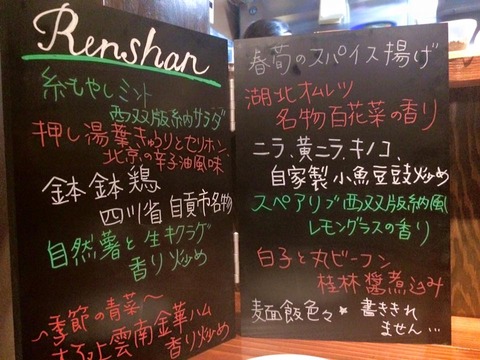 Renshan
糸もやしミント
西双版納サラダ
押し湯葉、きゅうりとセリホン、
北京の辛子油風味
鉢鉢鶏
四川省 自貢市名物
自然薯と生キクラゲ
香り炒め
〜季節の青菜〜
雲南金華ハム
香り炒め
春筍のスパイス揚げ
湖北オムレツ
名物百花菜の香り
ニラ、黄ニラ、キノコ
自家製小魚豆豉炒め
スペアリブ西双版納風
レモングラスの香り
白子と丸ビーフン
桂林醤煮込み
麺飯色々★書ききれ
ません…